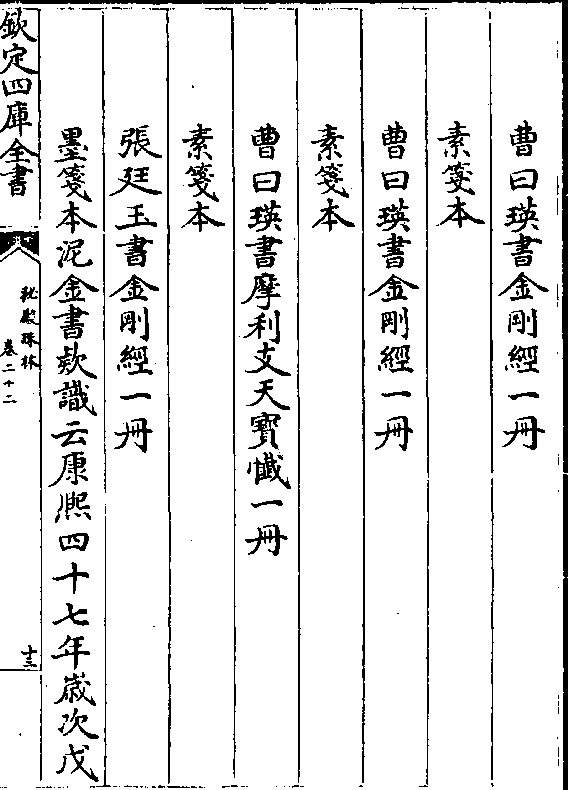 曹曰瑛書金剛經一冊
素箋本
曹曰瑛書金剛經一冊
素箋本
曹曰瑛書摩利支天寶懺一冊
素箋本
張廷玉書金剛經一冊
墨箋本泥金書欵識云康熙四十七年歲次戊
欽定四庫全書
秘殿珠林
卷二十二
十三